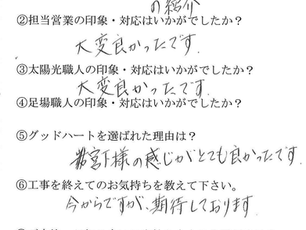 の紹介
②担当営業の印象・対応はいかがでしたか?
大変良かったです.
③太陽光職人の印象・対応はいかがでしたか?
大変良かったです.
④足場職人の印象・対応はいかがでしたか?
⑤グッドハートを選ばれた理由は?
宮下様の感じがとても良かったです.
⑥工事を終えてのお気持ちを教えて下さい。
今からですが、期待しております.